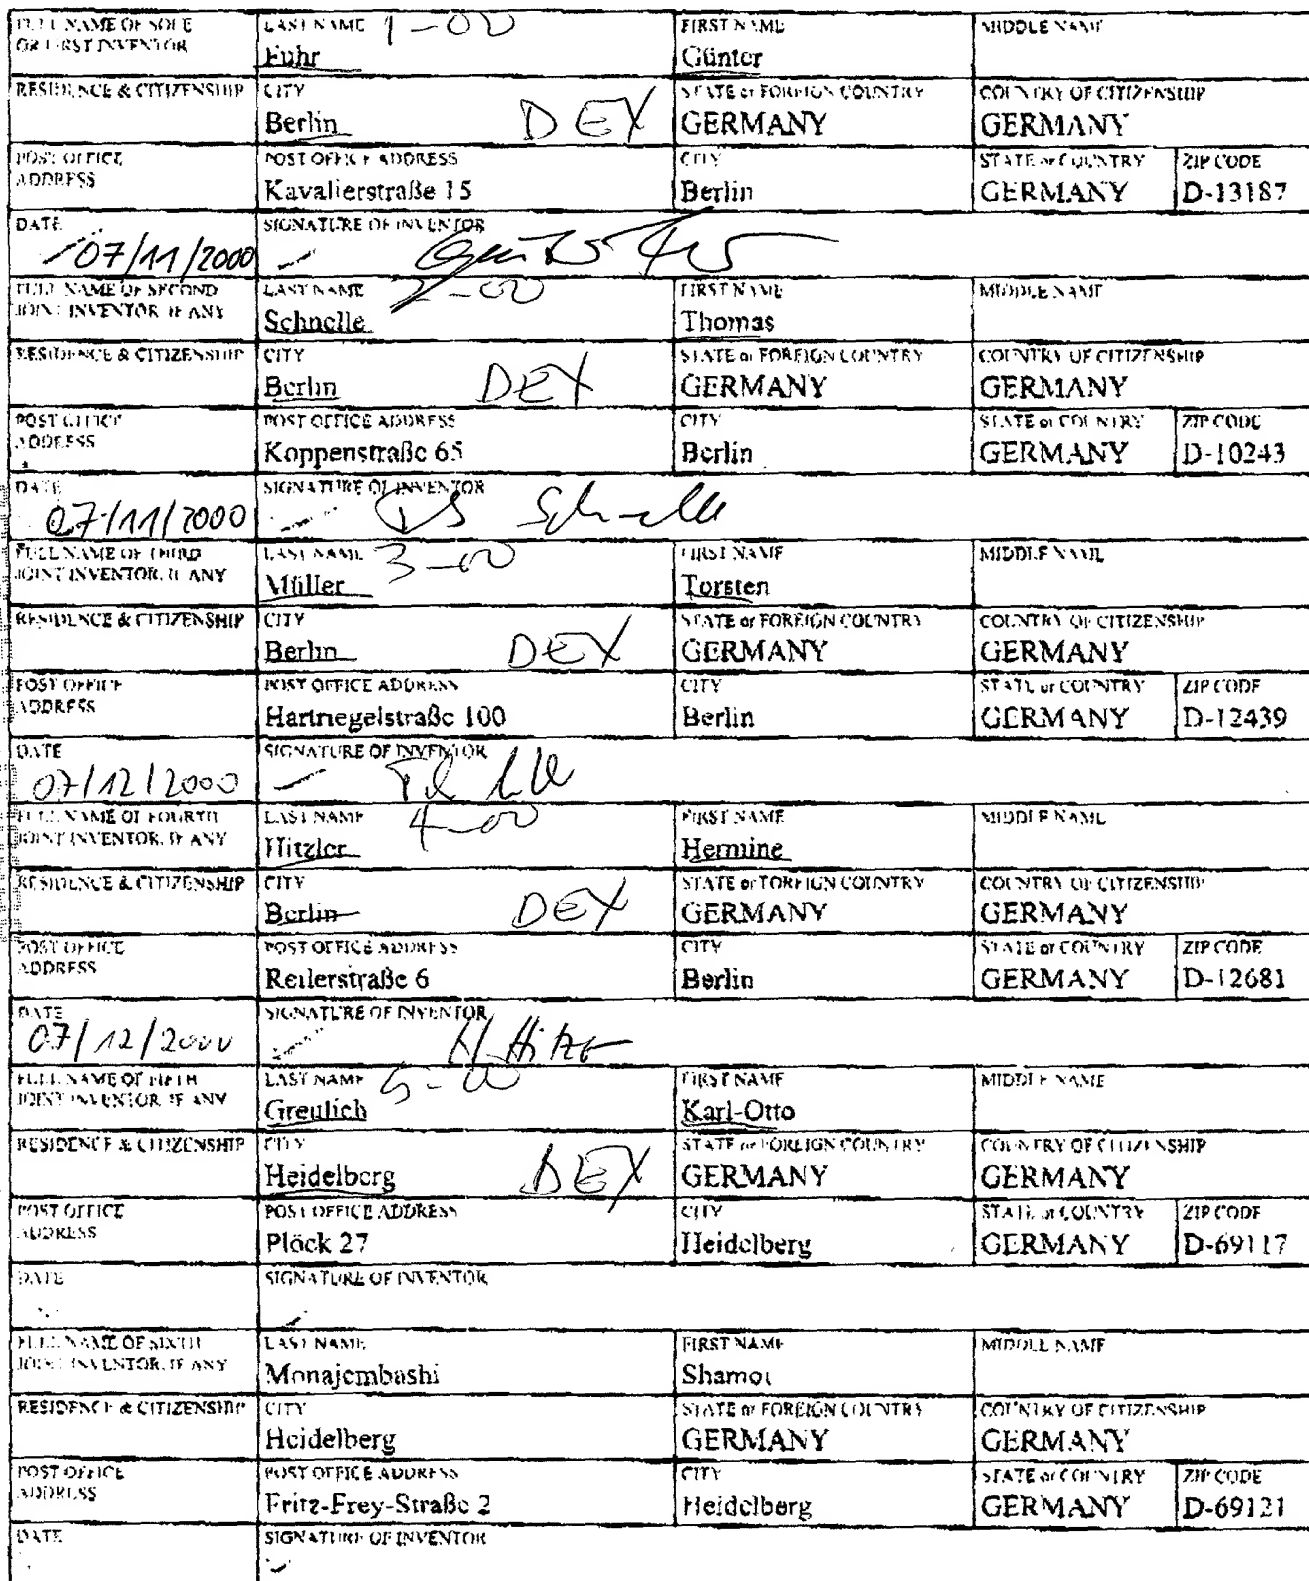 FULL NAME OF SOLE OR FIRST INVENTOR
LAST NAME 1-00
Fuhr
FIRST NAME
Günter
MIDDLE NAME
RESIDENCE & CITIZENSHIP
CITY
Berlin DEX
STATE or FOREIGN COUNTRY
GERMANY
COUNTRY OF CITIZENSHIP
GERMANY
POST OFFICE ADDRESS
POST OFFICE ADDRESS
Kavalierstraße 15
CITY
Berlin
STATE or COUNTRY
GERMANY
ZIP CODE
D-13187
DATE
07/11/2000
SIGNATURE OF INVENTOR
FULL NAME OF SECOND JOINT INVENTOR, IF ANY
LAST NAME 2-00
Schnelle
FIRST NAME
Thomas
MIDDLE NAME
RESIDENCE & CITIZENSHIP
CITY
Berlin DEX
STATE or FOREIGN COUNTRY
GERMANY
COUNTRY OF CITIZENSHIP
GERMANY
POST OFFICE ADDRESS
POST OFFICE ADDRESS
Koppenstraße 65
CITY
Berlin
STATE or COUNTRY
GERMANY
ZIP CODE
D-10243
DATE
07/11/2000
SIGNATURE OF INVENTOR
Schnelle
FULL NAME OF THIRD JOINT INVENTOR, IF ANY
LAST NAME 3-00
Müller
FIRST NAME
Torsten
MIDDLE NAME
RESIDENCE & CITIZENSHIP
CITY
Berlin DEX
STATE or FOREIGN COUNTRY
GERMANY
COUNTRY OF CITIZENSHIP
GERMANY
POST OFFICE ADDRESS
POST OFFICE ADDRESS
Hartriegelstraße 100
CITY
Berlin
STATE or COUNTRY
GERMANY
ZIP CODE
D-12439
DATE
07/12/2000
SIGNATURE OF INVENTOR
FULL NAME OF FOURTH JOINT INVENTOR, IF ANY
LAST NAME 4-00
Hitzler
FIRST NAME
Hermine
MIDDLE NAME
RESIDENCE & CITIZENSHIP
CITY
Berlin DEX
STATE or FOREIGN COUNTRY
GERMANY
COUNTRY OF CITIZENSHIP
GERMANY
POST OFFICE ADDRESS
POST OFFICE ADDRESS
Reilerstraße 6
CITY
Berlin
STATE or COUNTRY
GERMANY
ZIP CODE
D-12681
DATE
07/12/2000
SIGNATURE OF INVENTOR
FULL NAME OF FIFTH JOINT INVENTOR, IF ANY
LAST NAME 5-00
Greulich
FIRST NAME
Karl-Otto
MIDDLE NAME
RESIDENCE & CITIZENSHIP
CITY
Heidelberg DEX
STATE or FOREIGN COUNTRY
GERMANY
COUNTRY OF CITIZENSHIP
GERMANY
POST OFFICE ADDRESS
POST OFFICE ADDRESS
Plöck 27
CITY
Heidelberg
STATE or COUNTRY
GERMANY
ZIP CODE
D-69117
DATE
SIGNATURE OF INVENTOR
FULL NAME OF SIXTH JOINT INVENTOR, IF ANY
LAST NAME
Monajembashi
FIRST NAME
Shamci
MIDDLE NAME
RESIDENCE & CITIZENSHIP
CITY
Heidelberg
STATE or FOREIGN COUNTRY
GERMANY
COUNTRY OF CITIZENSHIP
GERMANY
POST OFFICE ADDRESS
POST OFFICE ADDRESS
Fritz-Frey-Straße 2
CITY
Heidelberg
STATE or COUNTRY
GERMANY
ZIP CODE
D-69121
DATE
SIGNATURE OF INVENTOR